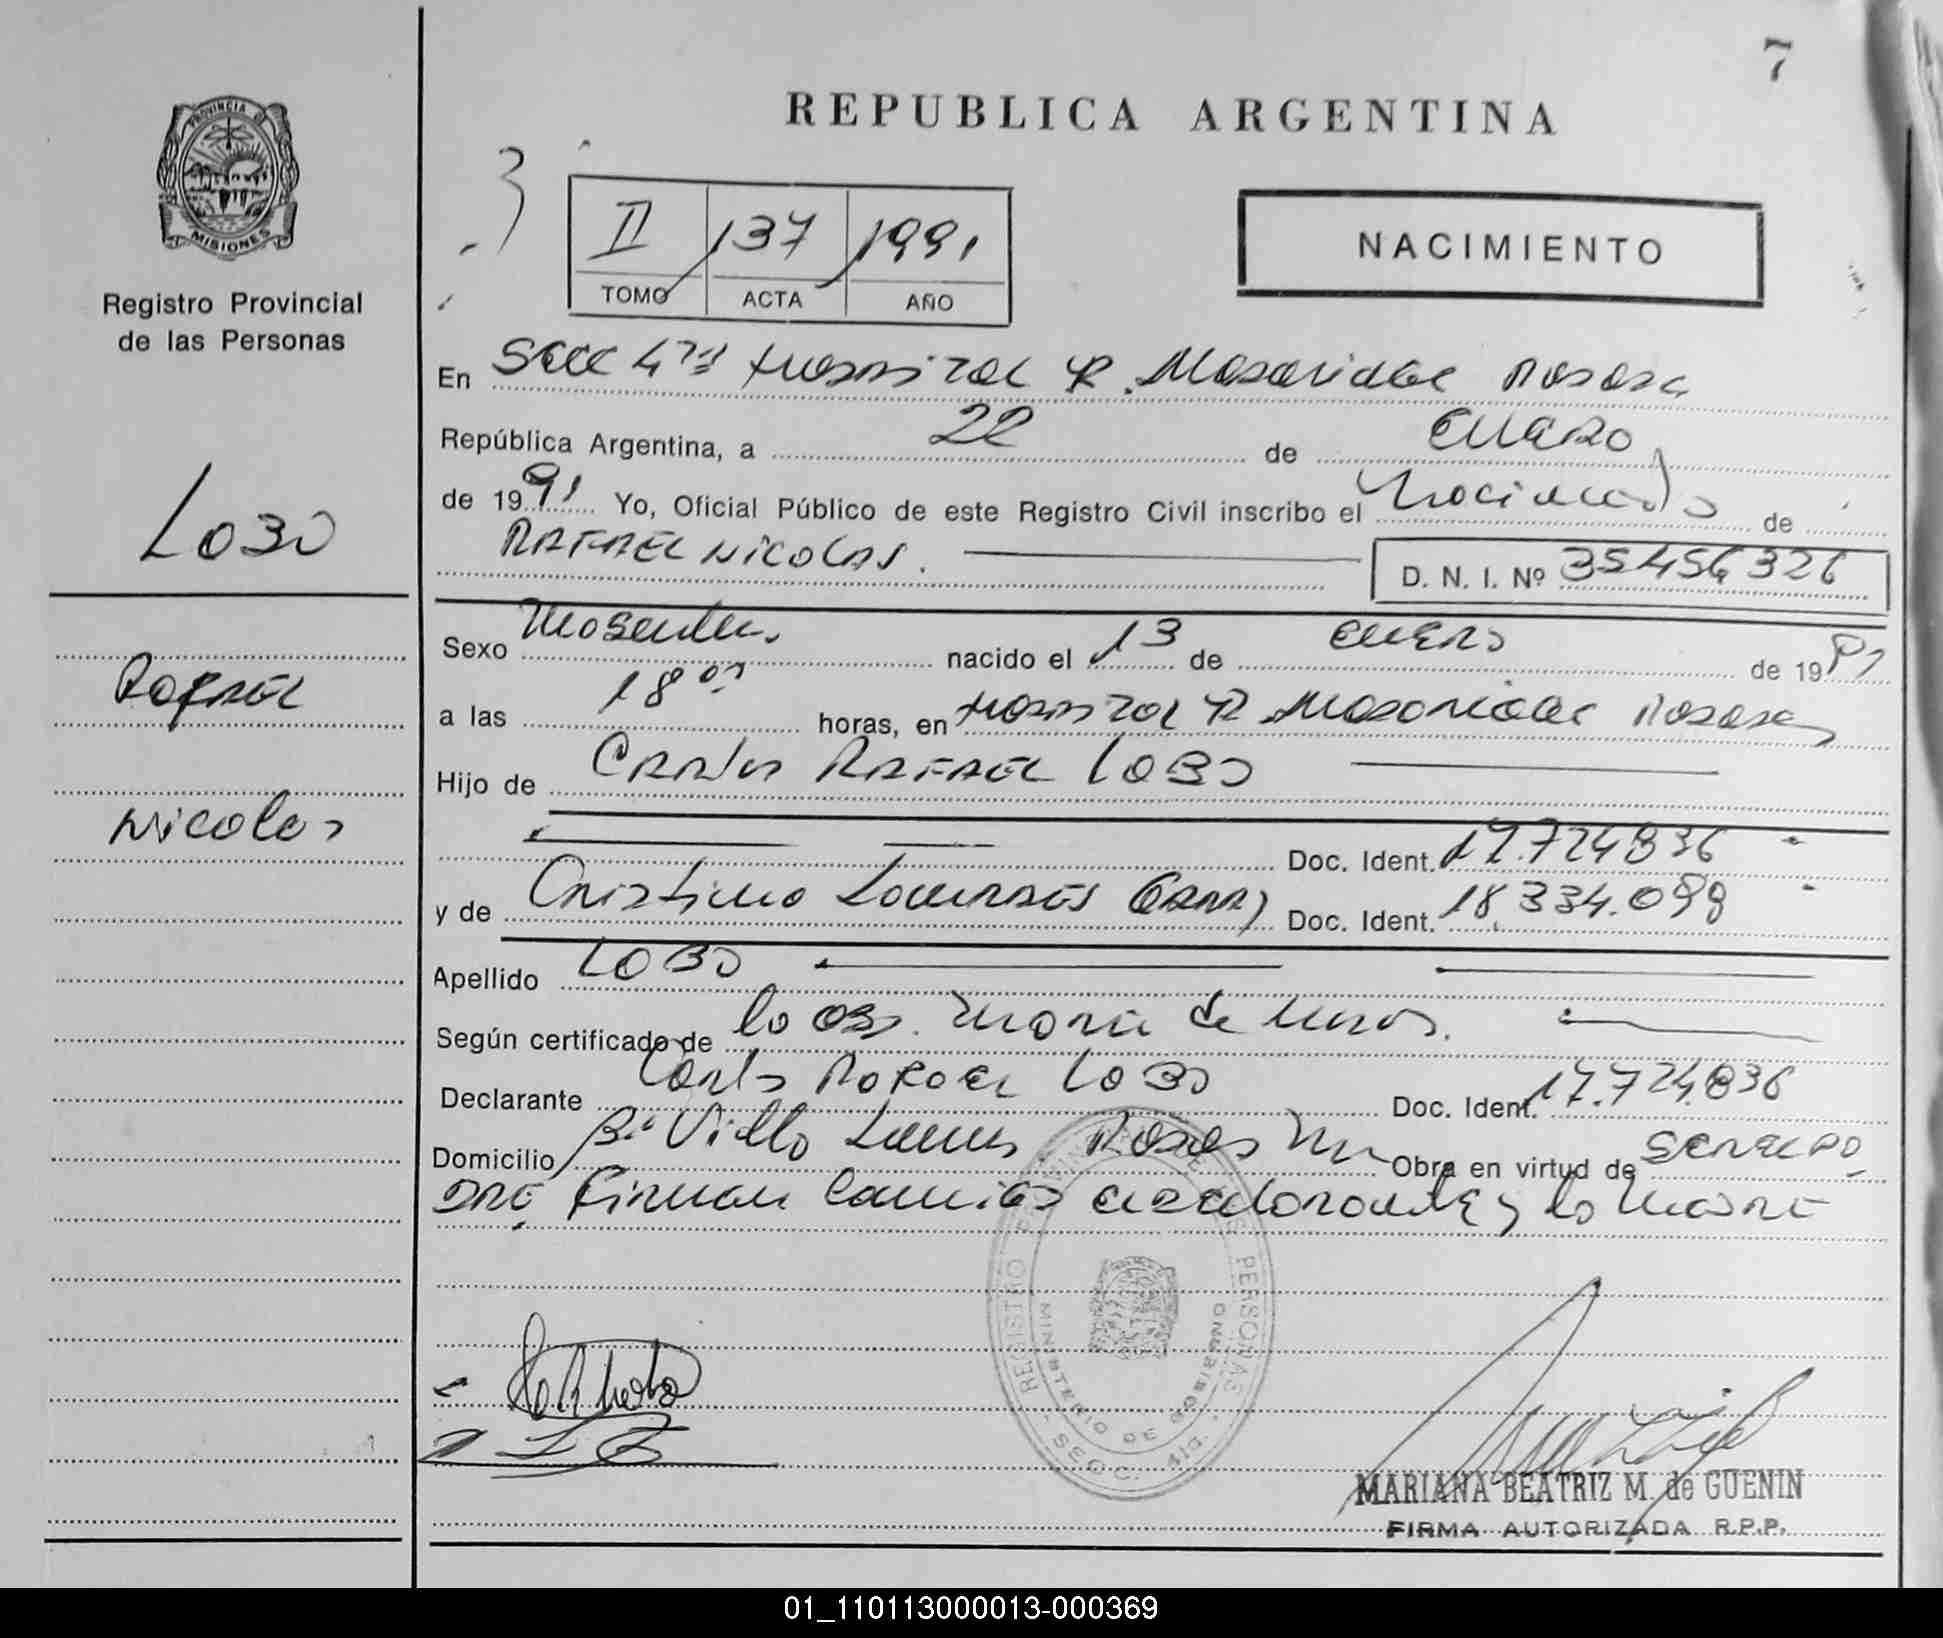 7
REPUBLICA ARGENTINA
PROVINCIA DE
MISIONES
Registro Provincial
de las Personas
3
II 137 1991
TOMO ACTA AÑO
NACIMIENTO
En Secc 4ta Hospital R. Madariaga Posadas
República Argentina, a 22 de ENERO
de 1991 Yo, Oficial Público de este Registro Civil inscribo el Nacimiento de
RAFAEL NICOLAS. D. N. I. Nº 35456326
LOBO
Rafael
Nicolas
Sexo Masculino nacido el 13 de ENERO de 1991
a las 18 horas, en Hospital R. Madariaga Posadas
Hijo de Carlos RAFAEL LOBO
Doc. Ident. 17.724836
y de Cristina Lourdes Doc. Ident. 18.334.099
Apellido LOBO
Según certificado de la Obs. Maria de
Declarante Carlos Rafael LOBO Doc. Ident. 17.724.836
Domicilio Bº Villa Posadas Mnes Obra en virtud de
y la Madre
REGISTRO PERSONAS
MINISTERIO DE GOBIERNO
SECC. 4ta.
MARIANA BEATRIZ M. de GUENIN
FIRMA AUTORIZADA R.P.P.
01_110113000013-000369